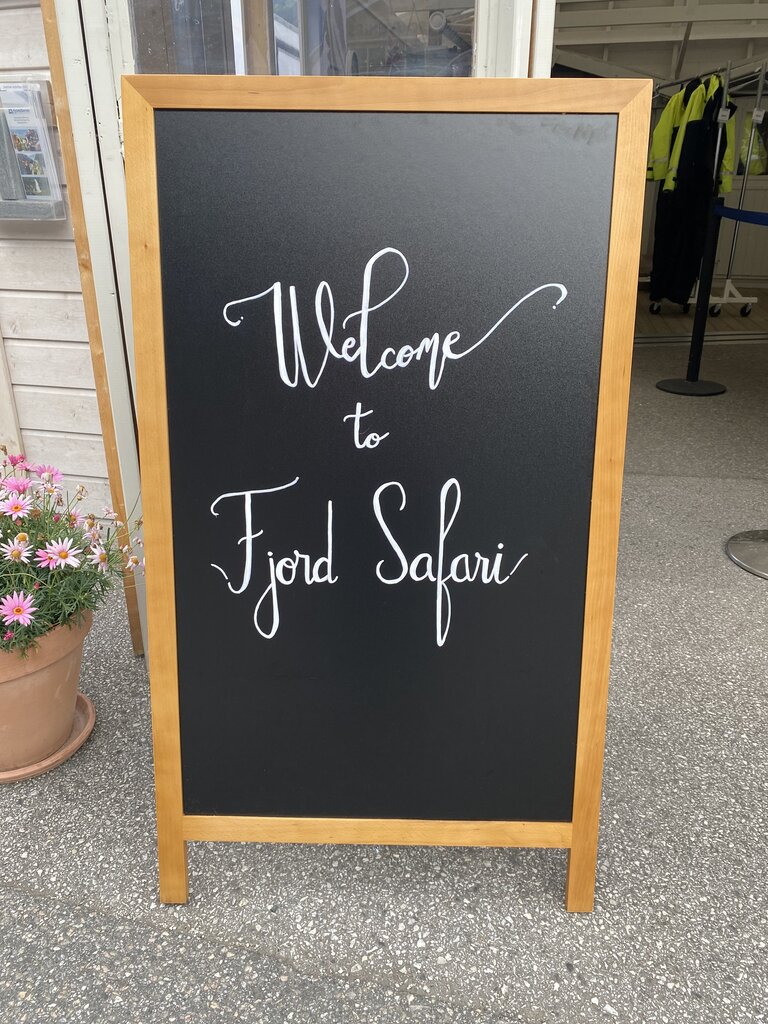 Welcome
to
Fjord Safari